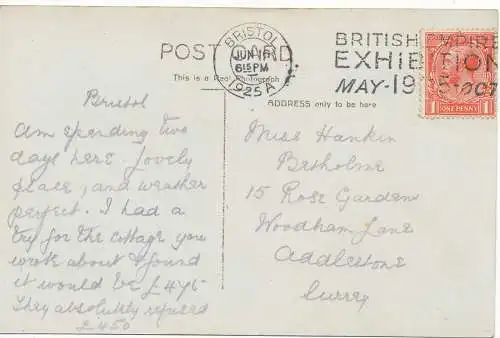 POST CARD
This is a Real Photograph
BRISTOL
JUN 16
6 15 PM
1925
A
BRITISH EMPIRE
EXHIBITION
MAY-1925-OCT
ONE PENNY
ADDRESS only to be here
Bristol
Am spending two
days here. Lovely
place, and weather
perfect. I had a
try for the cottage you
wrote about & found
it would be £475
They absolutely refused
£450
Miss Hankin
Betholme
15 Rose Gardens
Woodham Lane
Addlestone
Surrey